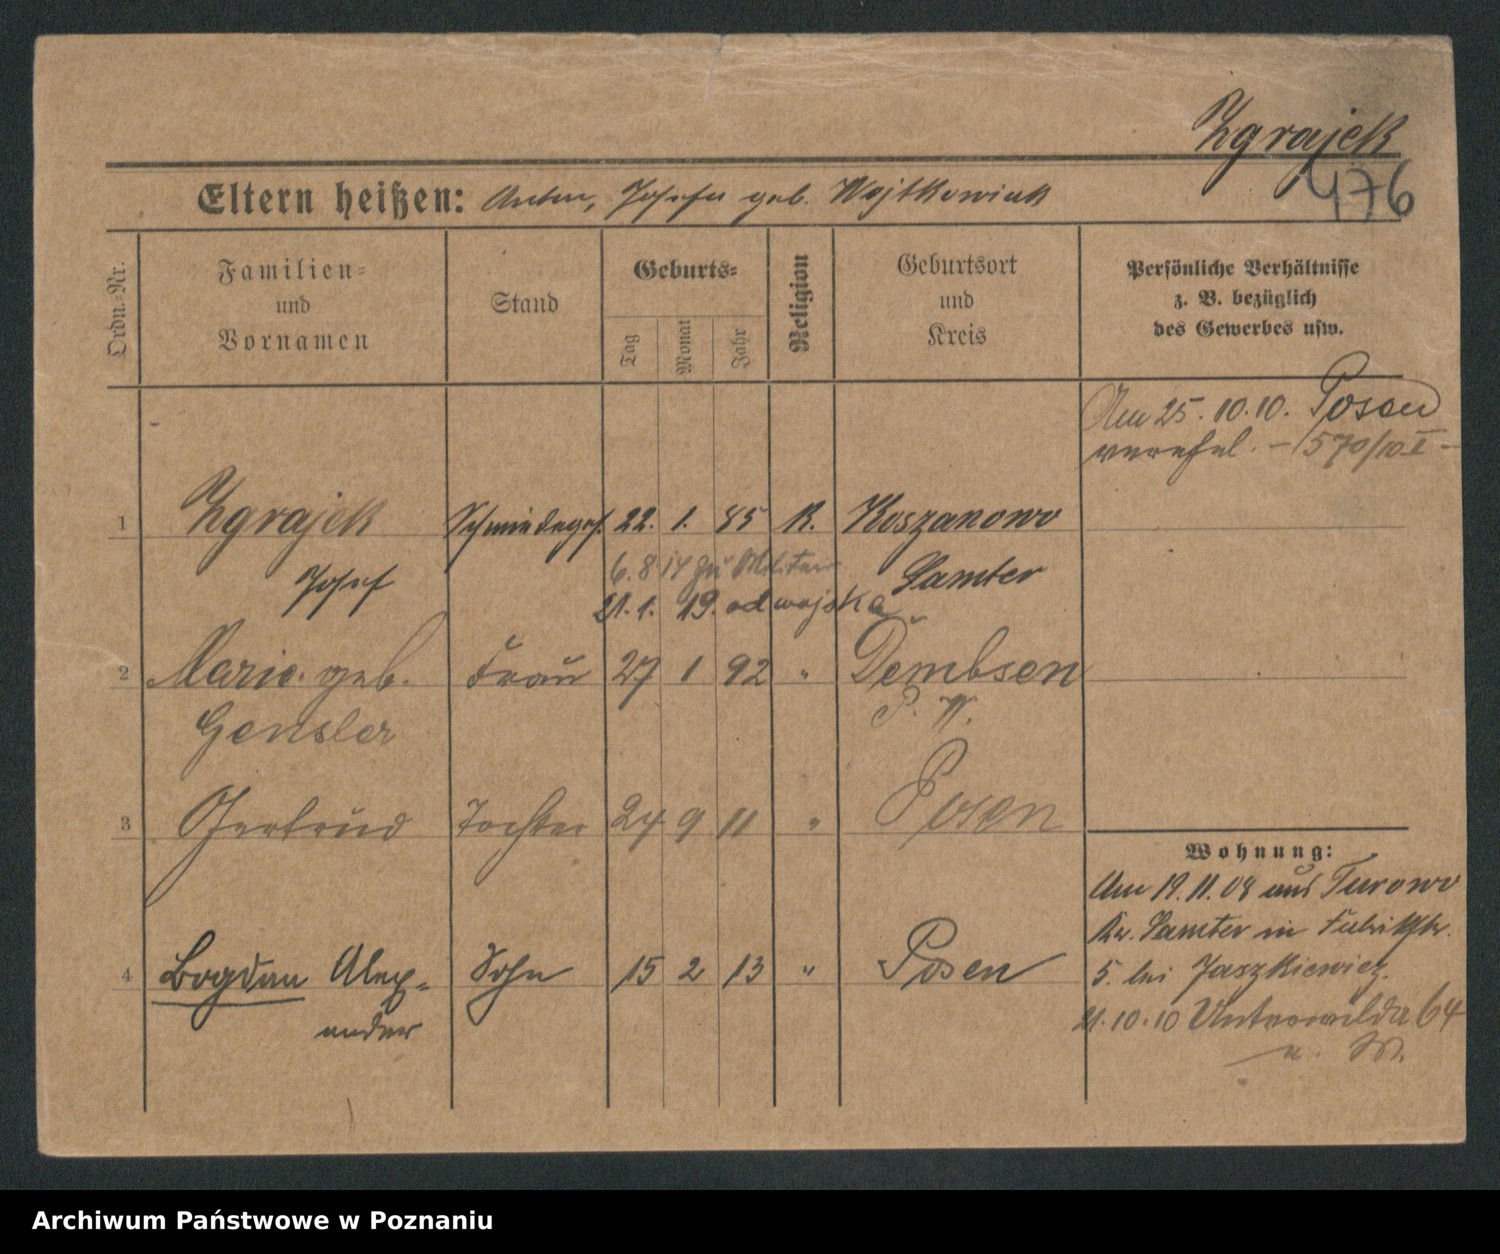 Zgrajek
476
Eltern heißen: Anton, Josefa geb. Wojtkowiak
Ordn.-Nr.
Familien-
und
Vornamen
Stand
Geburts-
Tag
Monat
Jahr
Religion
Geburtsort
und
Kreis
Persönliche Verhältnisse
z. B. bezüglich
des Gewerbes usw.
Am 25.10.10. Posen
verehel. - 1570/10 I -
1 Zgrajek Schmiedeges. 22. 1. 85 K. Koszanowo
Josef Samter
6. 8 14 zu Militär
21. 1. 19. od wojska
2 Marie geb. Frau 27 1 92 " Dembsen
Gensler P. W.
3 Gertrud Tochter 24 9 11 " Posen
4 Bogdan Alex- Sohn 15 2 13 " Posen
ander
Wohnung:
Am 19.11.08 aus Turowo
Kr. Samter in
5. bei Jaszkiewicz.
21.10.10 Unterwilda 64
Archiwum Państwowe w Poznaniu